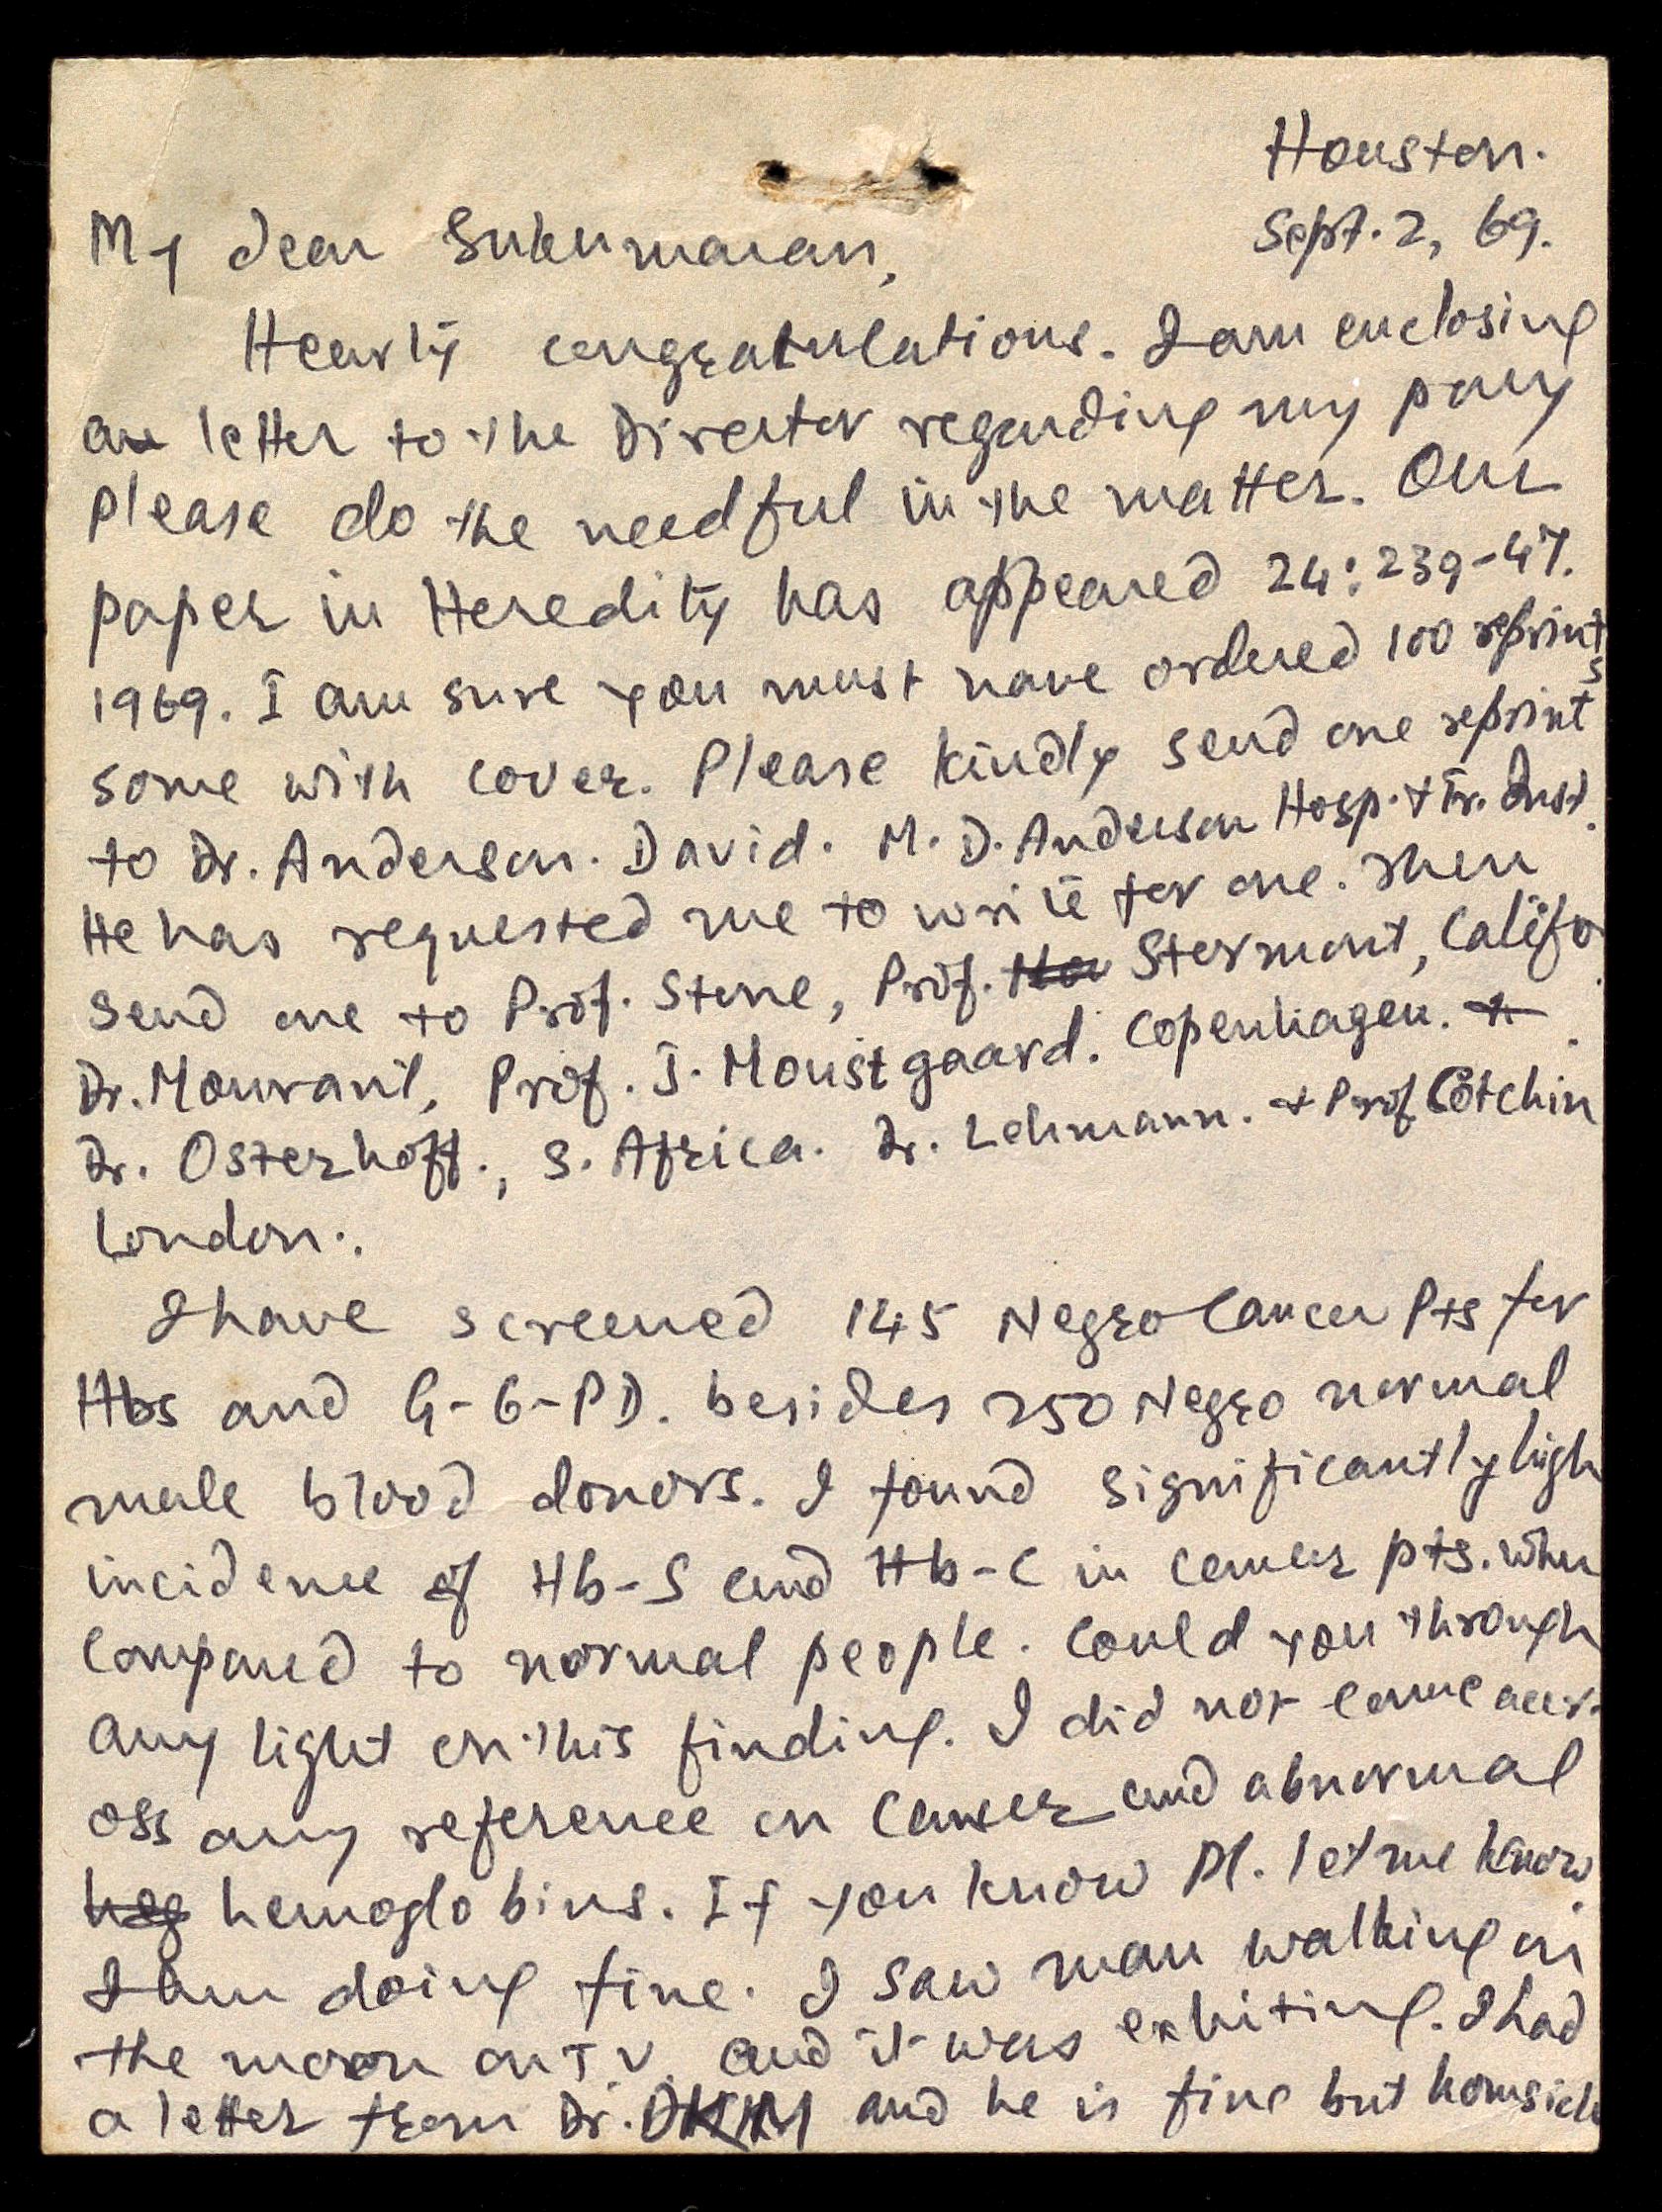 Houston.
Sept. 2, 69.
My dear Sukumaran,
Hearty congratulations. I am enclosing
a letter to the Director regarding my pay
please do the needful in the matter. Our
paper in Heredity has appeared 24: 239-47.
1969. I am sure you must have ordered 100 reprints
some with cover. Please kindly send one reprint
to Dr. Anderson. David. M. D. Anderson Hosp. & Tr. Inst.
He has requested me to write for one. Then
send one to Prof. Stone, Prof. Stormont, Califo.
Dr. Mourant, Prof. J. Moustgaard. Copenhagen.
Dr. Osterhoff., S. Africa. Dr. Lehmann. & Prof Cotchin
London.
I have screened 145 Negro Cancer Pts for
Hbs and G-6-PD. besides 250 Negro normal
male blood donors. I found significantly high
incidence of Hb-S and Hb-C in cancer pts. when
compared to normal people. Could you through
any light on this finding. I did not come acr-
oss any reference on cancer and abnormal
hemoglobins. If you know Pl. let me know.
I am doing fine. I saw man walking on
the moon on T.V. and it was exhiting. I had
a letter from Dr. DKM and he is fine but homsick